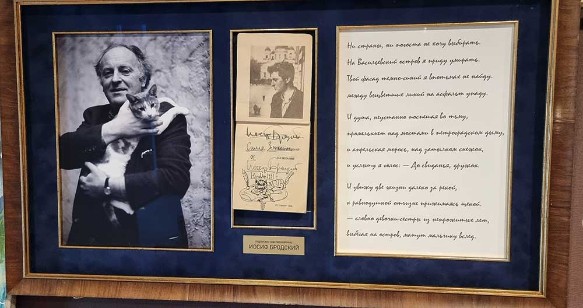 Иосиф Бродский
ИОСИФ БРОДСКИЙ
Ни страны, ни погоста не хочу выбирать.
На Васильевский остров я приду умирать.
Твой фасад темно-синий я впотьмах не найду.
между выцветших линий на асфальт упаду.
И душа, неустанно поспешая во тьму,
промелькнет над мостами в петроградском дыму,
и апрельская морось, над затылком снежок,
и услышу я голос: — До свиданья, дружок.
И увижу две жизни далеко за рекой,
к равнодушной отчизне прижимаясь щекой.
— словно девочки-сестры из непрожитых лет,
выбегая на остров, машут мальчику вслед.